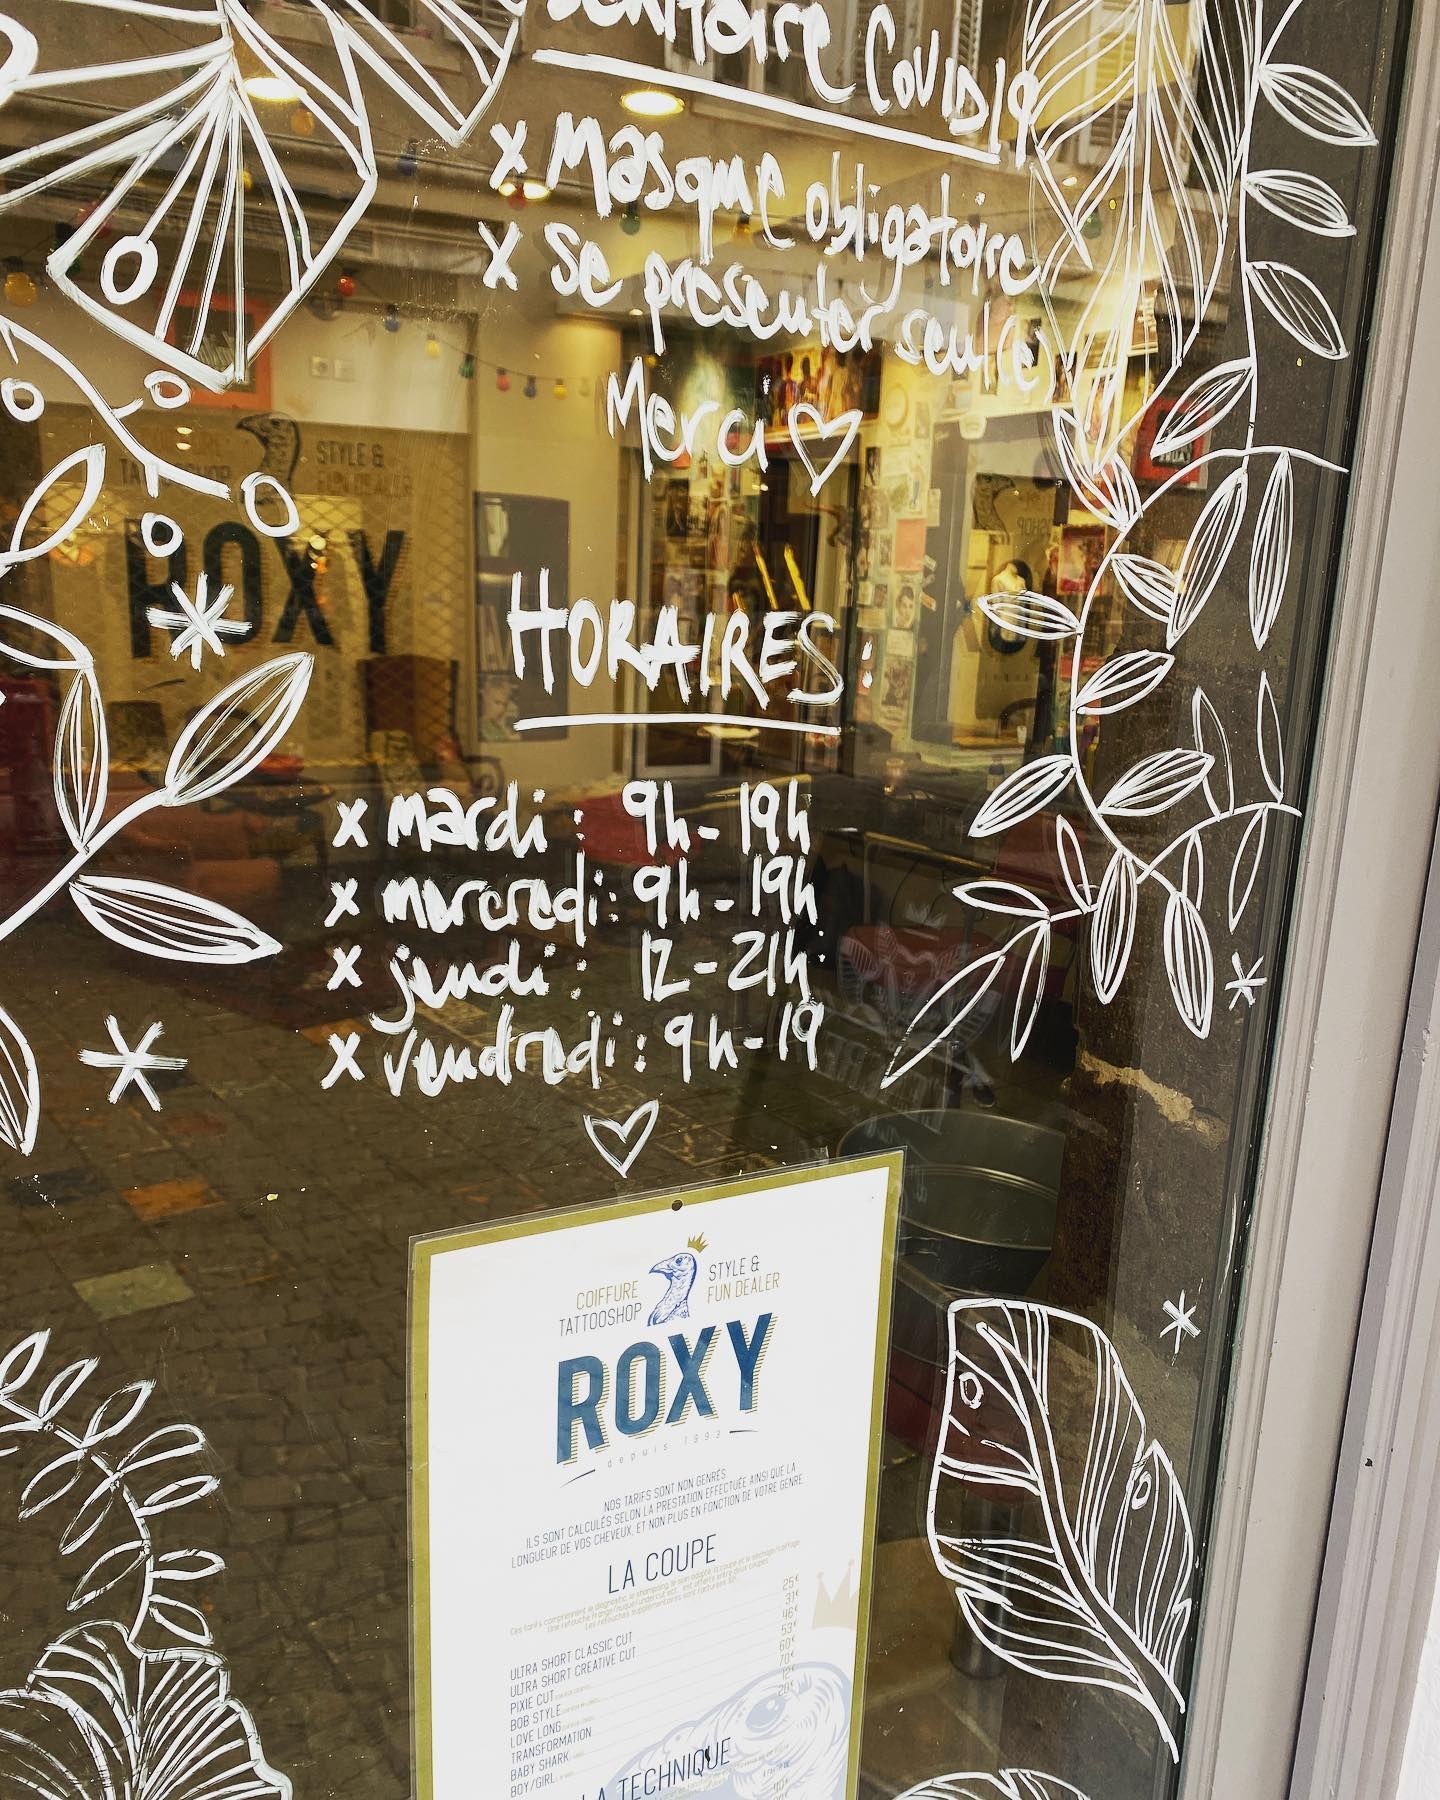 sanitaire COVID19
x Masque obligatoire
x se presenter seul(e)
Merci ♡
STYLE &
FUN DEALER
TATTOOSHOP
ROXY
HORAIRES:
x mardi: 9h-19h
x mercredi: 9h-19h
x jeudi: 12-21h
x vendredi: 9h-19
COIFFURE
TATTOOSHOP
STYLE &
FUN DEALER
ROXY
depuis 1993
NOS TARIFS SONT NON GENRÉS
ILS SONT CALCULÉS SELON LA PRESTATION EFFECTUÉE AINSI QUE LA
LONGUEUR DE VOS CHEVEUX, ET NON PLUS EN FONCTION DE VOTRE GENRE
LA COUPE
ULTRA SHORT CLASSIC CUT 25€
ULTRA SHORT CREATIVE CUT 31€
PIXIE CUT 46€
BOB STYLE 53€
LOVE LONG 60€
TRANSFORMATION 70€
BABY SHARK 12€
BOY/GIRL 20€
LA TECHNIQUE